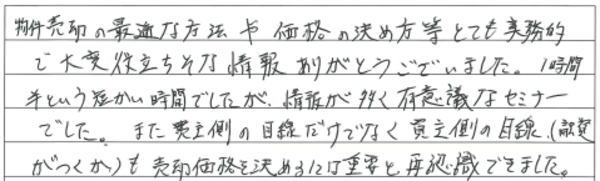 物件売却の最適な方法や価格の決め方等とても実務的
で大変役立ちそな情報ありがとうございました。1時間
半という短かい時間でしたが、情報が多く有意議なセミナー
でした。また売主側の目線だけでなく買主側の目線、(融資
がつくか)も売却価格を決めるには重要と再認識できました。